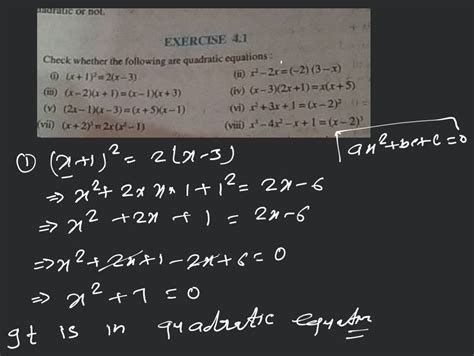 quadratic or not.
EXERCISE 4.1
Check whether the following are quadratic equations :
(i) (x + 1)² = 2(x – 3)
(ii) x² – 2x = (–2) (3 – x)
(iii) (x – 2)(x + 1) = (x – 1)(x + 3)
(iv) (x – 3)(2x + 1) = x(x + 5)
(v) (2x – 1)(x – 3) = (x + 5)(x – 1)
(vi) x² + 3x + 1 = (x – 2)²
(vii) (x + 2)³ = 2x (x² – 1)
(viii) x³ – 4x² – x + 1 = (x – 2)³
① (x+1)² = 2(x-3)
ax²+bx+c=0
⇒ x² + 2 x x x 1 + 1² = 2x - 6
⇒ x² + 2x + 1 = 2x - 6
⇒ x² + 2x + 1 - 2x + 6 = 0
⇒ x² + 7 = 0
It is in quadratic